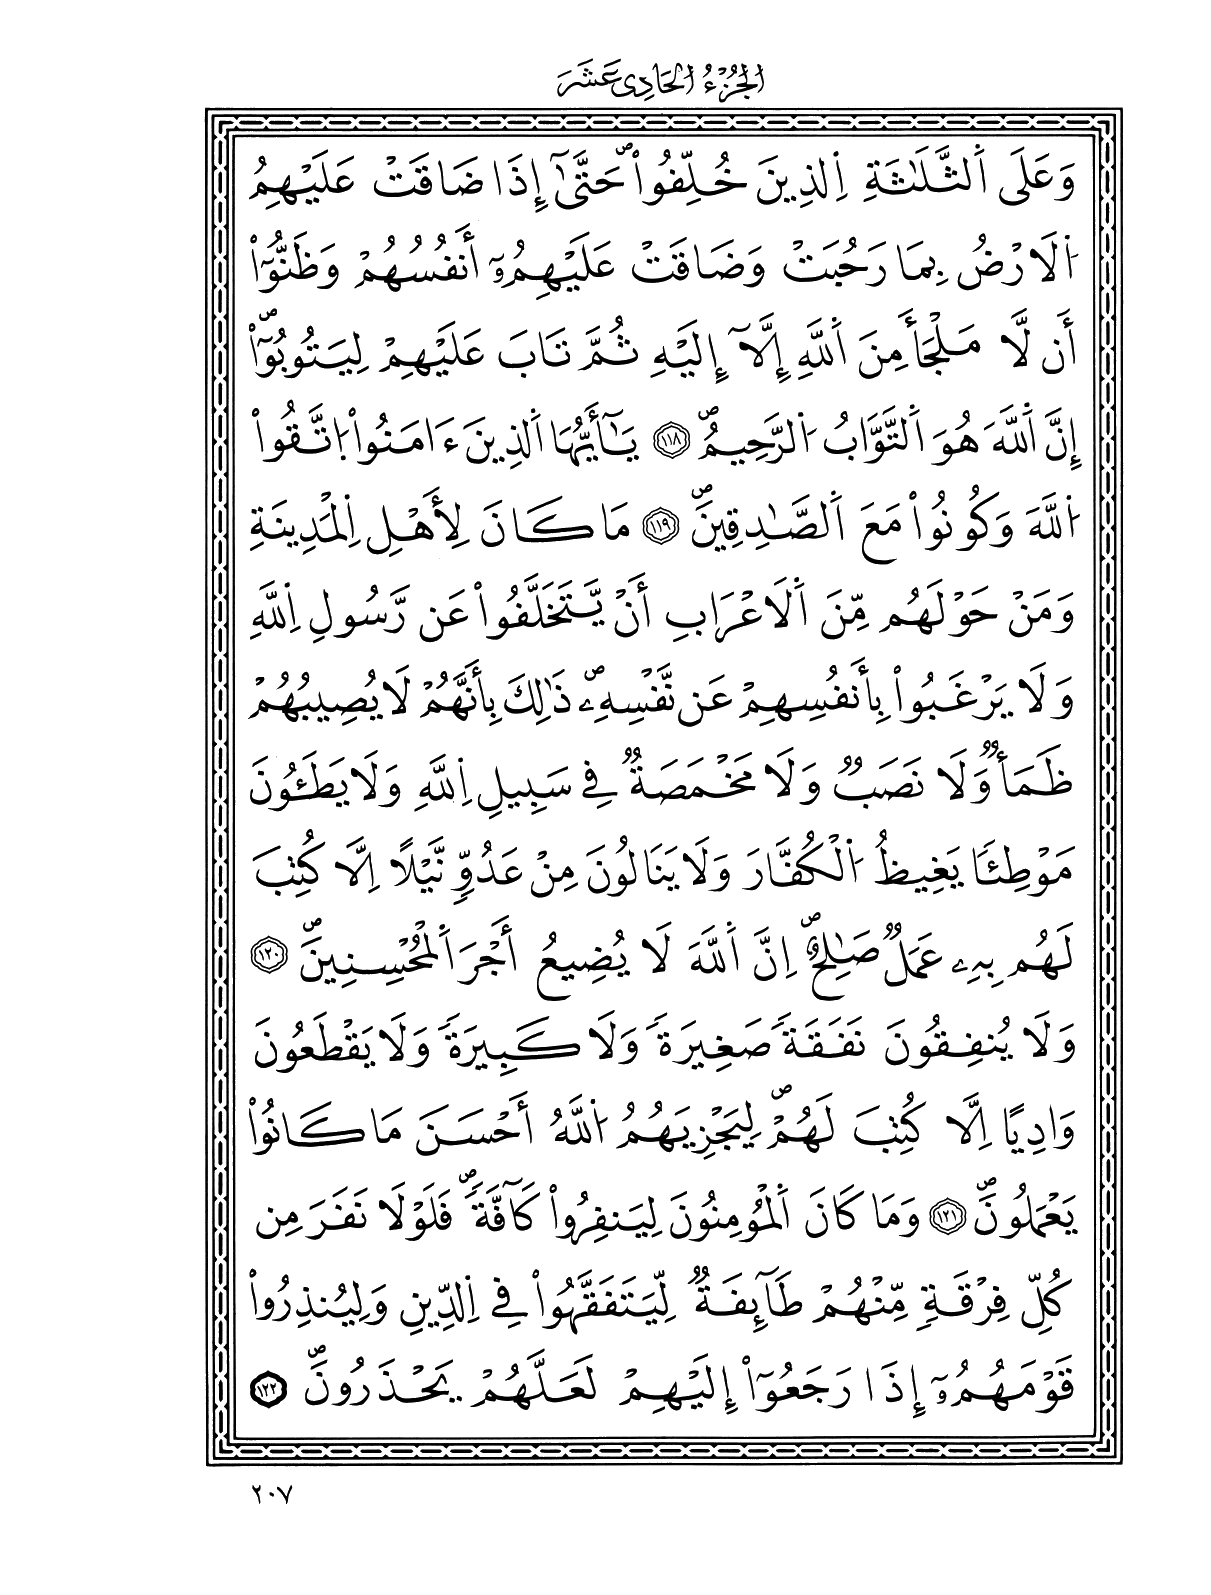 الجُزْءُ الحَادِي عَشَرَ
وَعَلَى اَ۬لثَّلَٰثَةِ اِ۬لذِينَ خُلِّفُواْۖ حَتَّىٰٓ إِذَا ضَاقَتْ عَلَيْهِمُ
اُ۬لَارْضُ بِمَا رَحُبَتْ وَضَاقَتْ عَلَيْهِمُۥٓ أَنفُسُهُمْ وَظَنُّوٓاْ
أَن لَّا مَلْجَأَ مِنَ اَ۬للَّهِ إِلَّآ إِلَيْهِ ثُمَّ تَابَ عَلَيْهِمْ لِيَتُوبُوٓاْۖ
إِنَّ اَ۬للَّهَ هُوَ اَ۬لتَّوَّابُ اُ۬لرَّحِيمُۖ ۝١١٨ يَٰٓأَيُّهَا اَ۬لذِينَ ءَامَنُواْ اُ۪تَّقُواْ
اُ۬للَّهَ وَكُونُواْ مَعَ اَ۬لصَّٰدِقِينَۖ ۝١١٩ مَا كَانَ لِأَهْلِ اِ۬لْمَدِينَةِ
وَمَنْ حَوْلَهُم مِّنَ اَ۬لَاعْرَابِ أَنْ يَّتَخَلَّفُواْ عَن رَّسُولِ اِ۬للَّهِ
وَلَا يَرْغَبُواْ بِأَنفُسِهِمْ عَن نَّفْسِهِۦۖ ذَٰلِكَ بِأَنَّهُمْ لَا يُصِيبُهُمْ
ظَمَأٞ وَلَا نَصَبٞ وَلَا مَخْمَصَةٞ فِے سَبِيلِ اِ۬للَّهِ وَلَا يَطَـُٔونَ
مَوْطِئاٗ يَغِيظُ اُ۬لْكُفَّارَ وَلَا يَنَالُونَ مِنْ عَدُوّٖ نَّيْلًا اِلَّا كُتِبَ
لَهُم بِهِۦ عَمَلٞ صَٰلِحٌۖ اِنَّ اَ۬للَّهَ لَا يُضِيعُ أَجْرَ اَ۬لْمُحْسِنِينَۖ ۝١٢٠
وَلَا يُنفِقُونَ نَفَقَةٗ صَغِيرَةٗ وَلَا كَبِيرَةٗ وَلَا يَقْطَعُونَ
وَادِيًا اِلَّا كُتِبَ لَهُمْۖ لِيَجْزِيَهُمُ اُ۬للَّهُ أَحْسَنَ مَا كَانُواْ
يَعْمَلُونَۖ ۝١٢١ وَمَا كَانَ اَ۬لْمُؤْمِنُونَ لِيَنفِرُواْ كَآفَّةٗۖ فَلَوْلَا نَفَرَ مِن
كُلِّ فِرْقَةٖ مِّنْهُمْ طَآئِفَةٞ لِّيَتَفَقَّهُواْ فِے اِ۬لدِّينِ وَلِيُنذِرُواْ
قَوْمَهُمُۥٓ إِذَا رَجَعُوٓاْ إِلَيْهِمْ لَعَلَّهُمْ يَحْذَرُونَۖ ۝١٢٢
٢٠٧